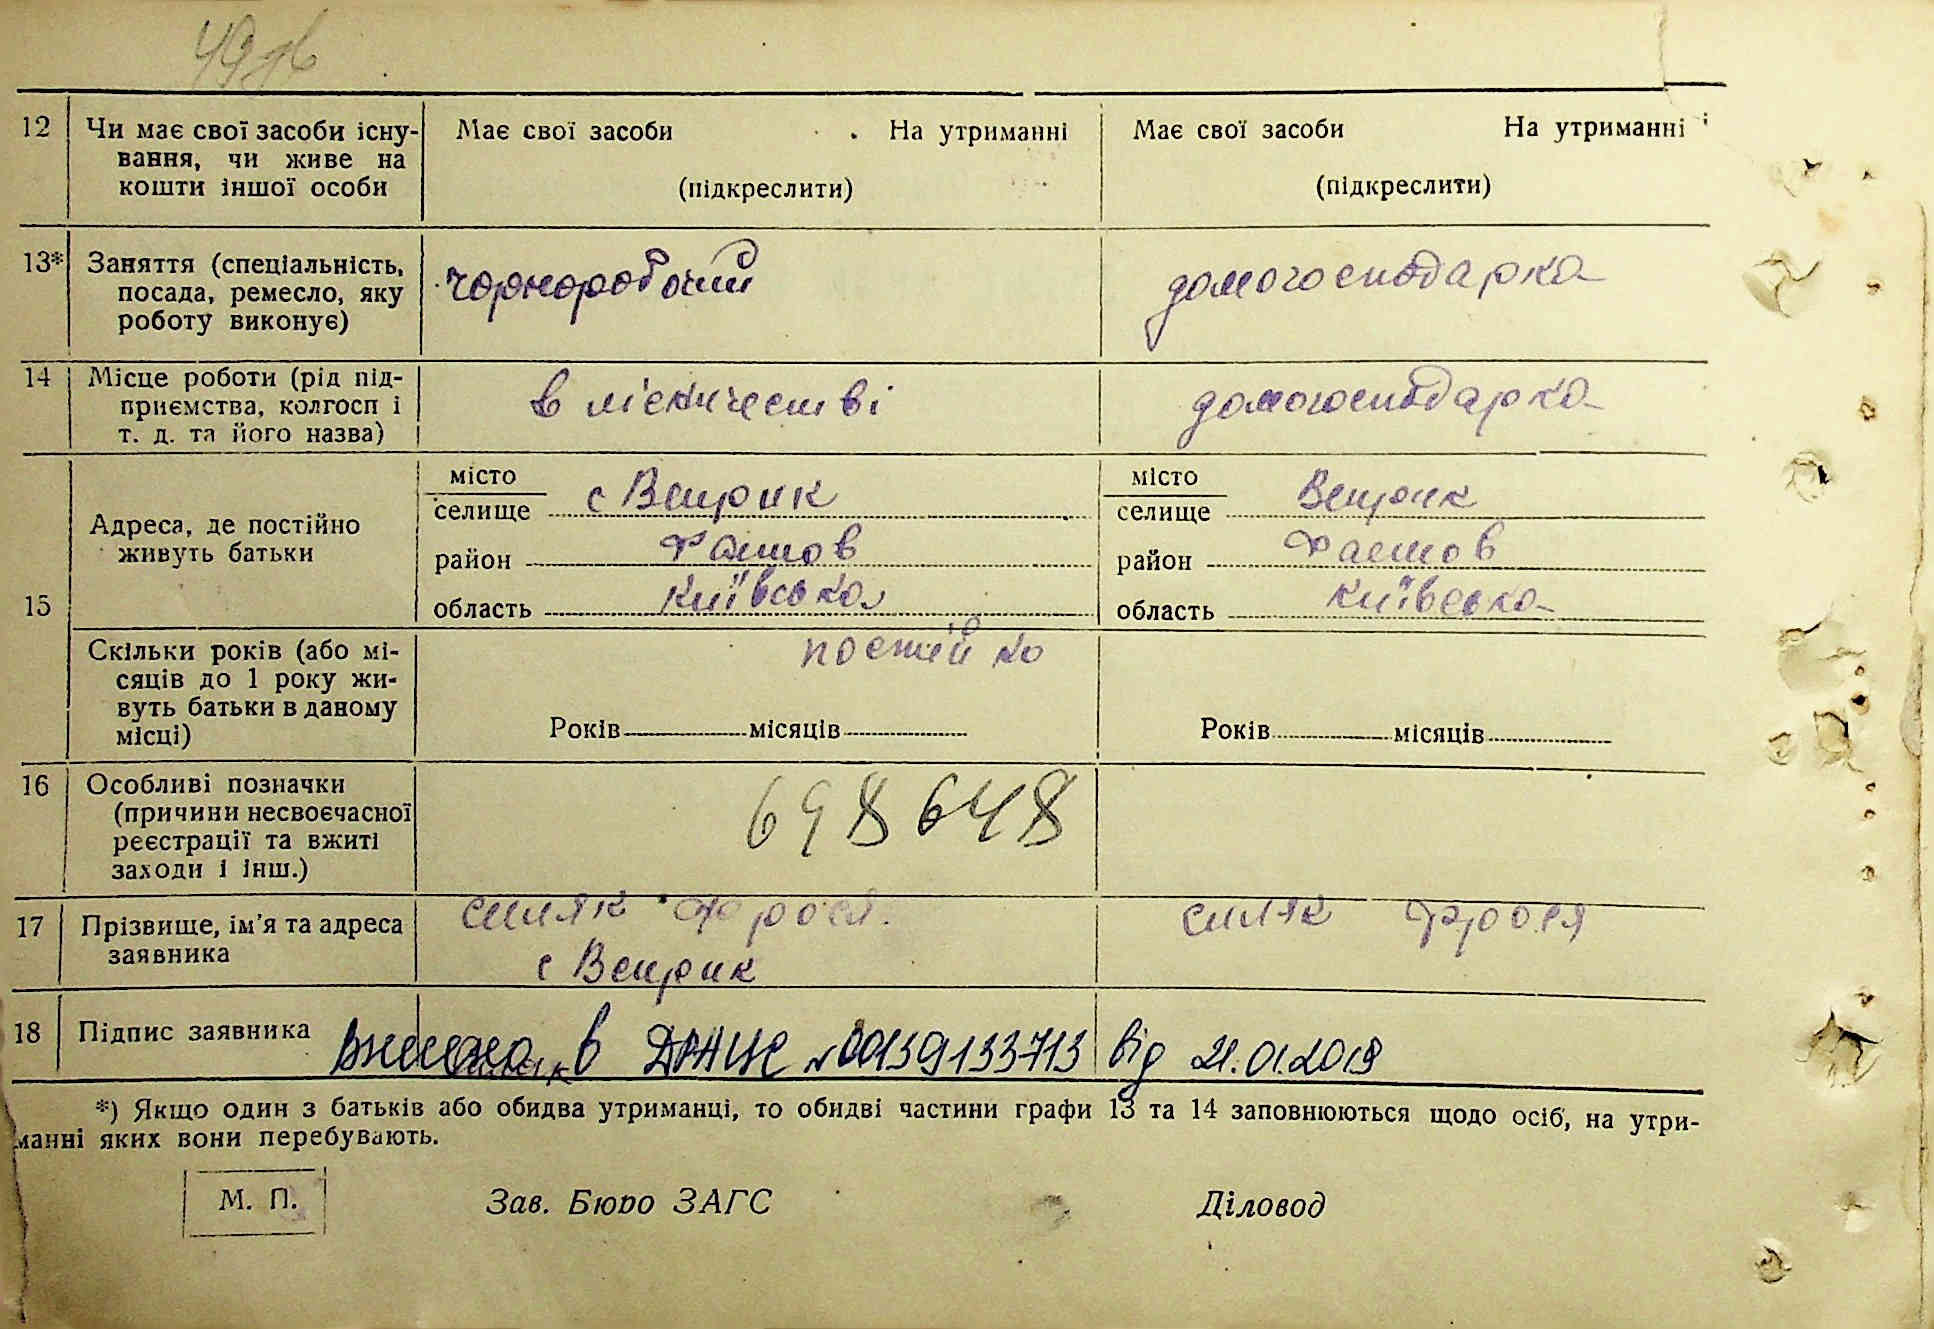 49 зв
12 Чи має свої засоби існу-
вання, чи живе на
кошти іншої особи
Має свої засоби На утриманні
(підкреслити)
Має свої засоби На утриманні
(підкреслити)
13* Заняття (спеціальність,
посада, ремесло, яку
роботу виконує)
чорноробочий
домогосподарка
14 Місце роботи (рід під-
приємства, колгосп і
т. д. та його назва)
в лісничестві
домогосподарка
15
Адреса, де постійно
живуть батьки
місто
селище с Веприк
район Фастов
область Київська
місто
селище Веприк
район Фастов
область Київська
Скільки років (або мі-
сяців до 1 року жи-
вуть батьки в даному
місці)
постійно
Років місяців
Років місяців
16 Особливі позначки
(причини несвоєчасної
реєстрації та вжиті
заходи і інш.)
698648
17 Прізвище, ім'я та адреса
заявника
Силяк Фрося
с Веприк
Силяк Фрося
18 Підпис заявника
внесено в ДРАЦС №00139133713 від 21.01.2019
*) Якщо один з батьків або обидва утриманці, то обидві частини графи 13 та 14 заповнюються щодо осіб, на утри-
манні яких вони перебувають.
М. П. Зав. Бюро ЗАГС Діловод